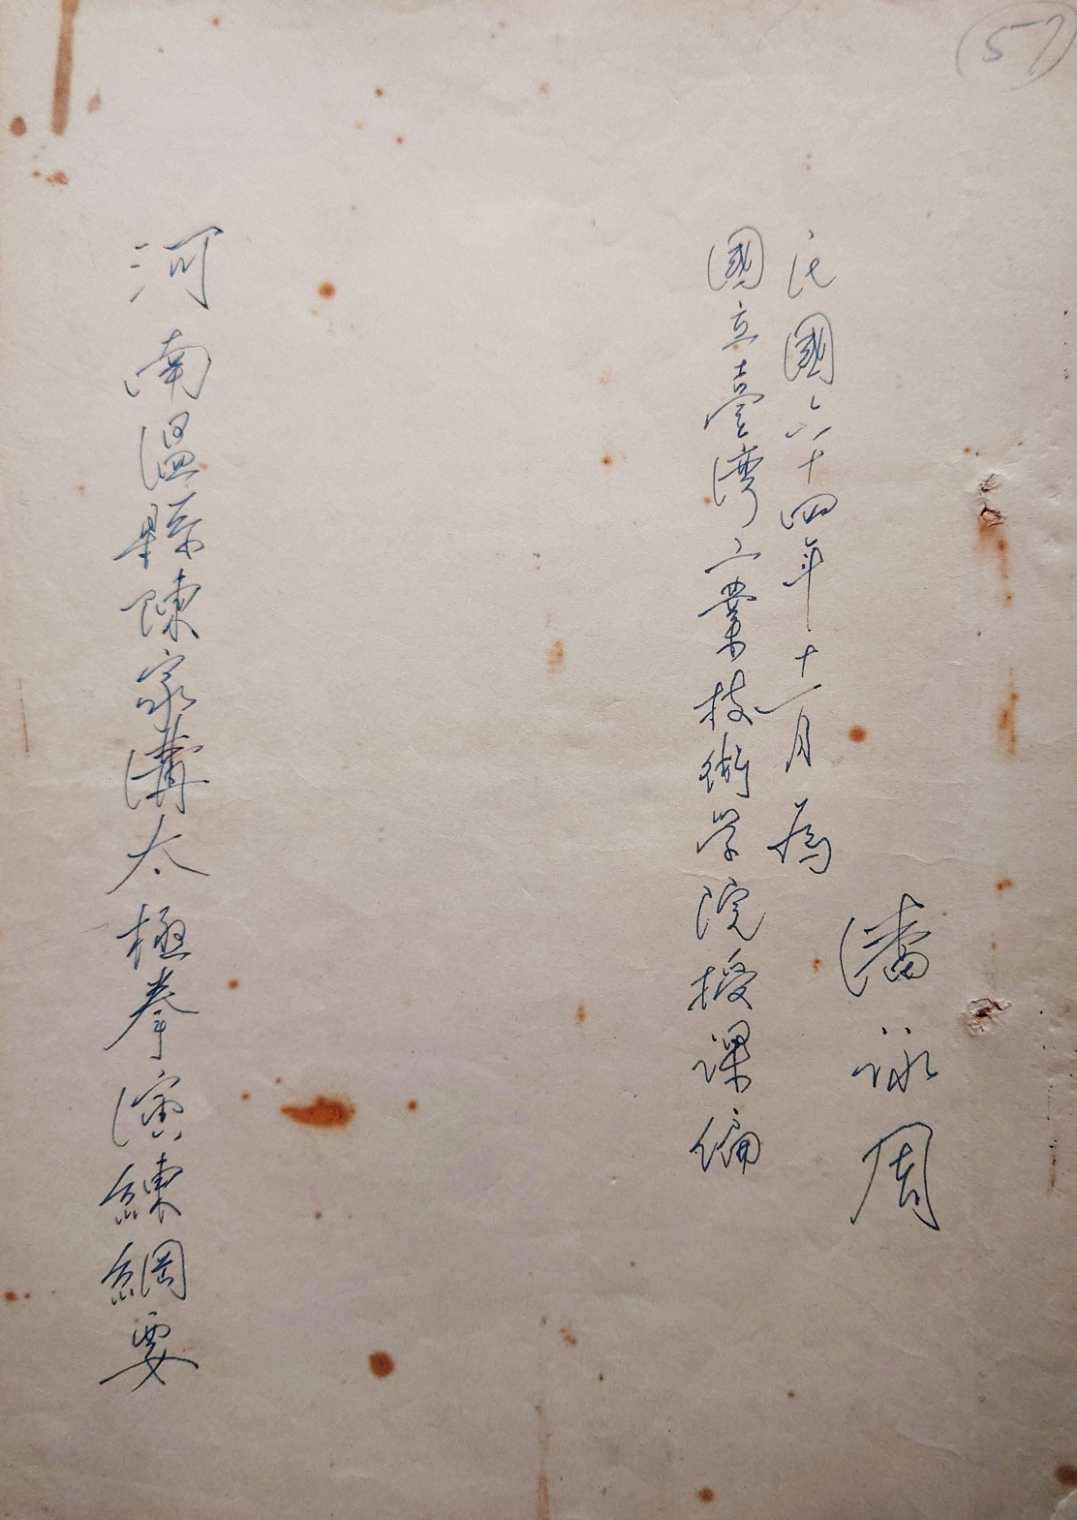 57
潘詠周
民國六十四年十一月為
國立臺灣工業技術学院授課編
河南溫縣陳家溝太極拳演練綱要